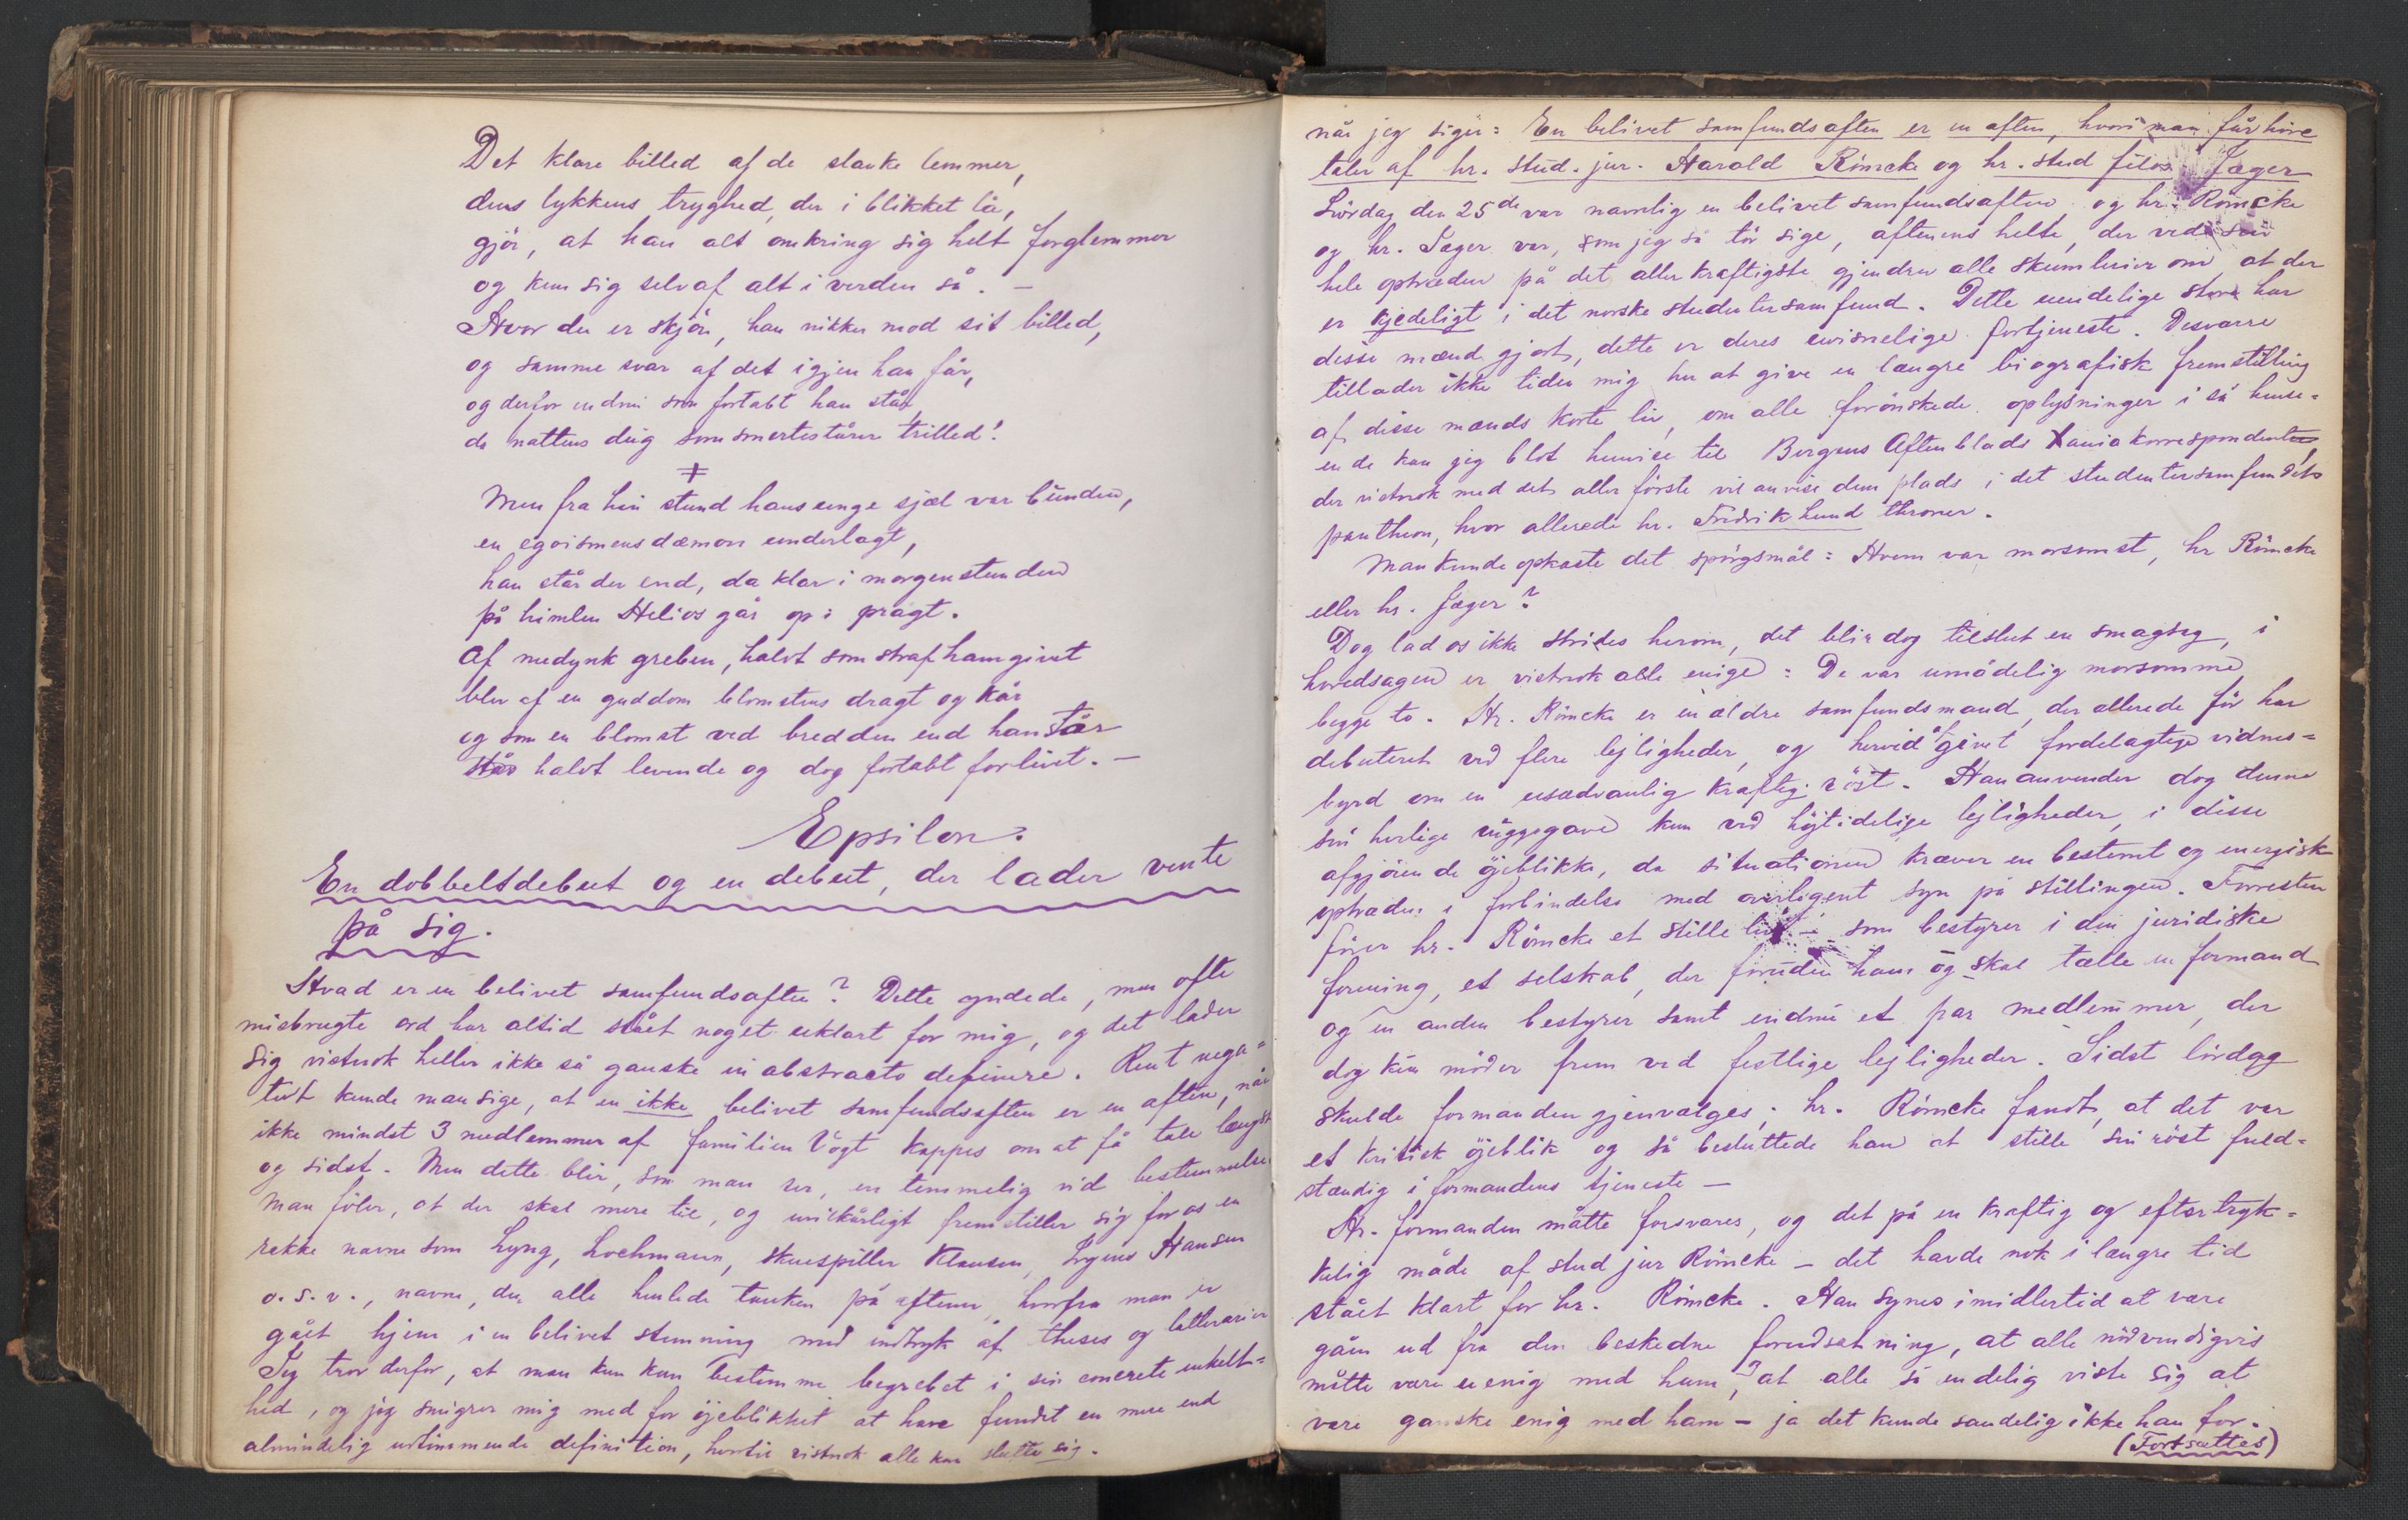 Det klare billed af de slanke lemmer,
dens lykkens tryghed, der i blikket lå,
gjör, at han alt omkring sig helt forglemmer
og kun sig selv af alt i verden så. —
Hvor du er skjön, han nikker mod sit billed,
og samme svar af det igjen han får,
og derfor endnu som fortabt han står,
da nattens dug som smertestårer trilled!
Men fra hin stund hans unge sjæl var bunden,
en egoismens dæmon underlagt,
han står der end, da klar i morgenstunden
på himlen Helios går op i pragt.
Af medynk greben, halvt som straf ham givet
blev af en guddom blomstens dragt og kår
og som en blomst ved bredden end han står
halvt levende og dog fortabt for livet. —
Epsilon.
En dobbeltdebut og en debut, der lader vente
på sig.
Hvad er en belivet samfundsaften? Dette yndede, men ofte
misbrugte ord har altid stået noget uklart for mig, og det lader
sig vistnok heller ikke så ganske in abstracto definere. Rent nega=
tivt kunde man sige, at en ikke belivet samfundsaften er en aften, når
ikke mindst 3 medlemmer af familien Vogt kappes om at få tale længst
og sidst. Men dette blir, som man ser, en temmelig vid bestemmelse
man föler, at der skal mere til, og uvilkårligt fremstiller sig for os en
rekke navne som Lyng, Lochmann, skuespiller Klausen, Hansen
o. s. v., navne, der alle henlede tanken på aftener, hvorfra man er
gået hjem i en belivet stemning med indtryk af theses og
Jeg tror derfor, at man kun kan bestemme begrebet i sin concrete enkelt=
hed, og jeg smigrer mig med for öjeblikket at have fundet en mere end
almindelig udtömmende definition, hvortil vistnok alle kan slutte sig.
når jeg siger: En belivet samfundsaften er en aften, hvori man får höre
taler af hr. stud. jur. Harald Römcke og hr. stud filos Jæger
Lördag den 25de var navnlig en belivet samfundsaften og hr. Römcke
og hr. Jæger var, som jeg så tör sige, aftenens helte, der ved sin
hele optræden på det aller kraftigste gjendrev alle skumlerier om, at der
er kjedeligt i det norske studentersamfund. Dette uendelige store har
disse mænd gjort, dette er deres uvisnelige fortjeneste. Desværre
tillader ikke tiden mig her at give en længre biografisk fremstilling
af disse mænds korte liv, om alle forönskede oplysninger i så hense=
ende kan jeg blot henvise til Bergens Aftenblads Xania korrespondent,
der vistnok med det aller förste vil anvise dem plads i det studentersamfundets
pantheon, hvor allerede hr. Fredrik Lund throner.
Man kunde opkaste det spörgsmål: Hvem var morsomst, hr Römcke
eller hr. Jæger?
Dog lad os ikke strides herom, det blir dog tilslut en smagsag, i
hovedsagen er vistnok alle enige: De var umådelig morsomme
begge to. Hr. Römcke er en ældre samfundsmand, der allerede för har
debuteret ved flere lejligheder, og herved givet fordelagtige vidnes=
byrd om en usædvanlig kraftig röst. Han anvender dog denne
sin herlige kun ved höjtidelige lejligheder, i disse
afgjörende öjeblikke, da situationen kræver en bestemt og energisk
optræden i forbindelse med overlegent syn på stillingen. Forresten
förer hr. Römcke et stille liv — som bestyrer i den juridiske
forening, et selskab, der foruden ham og skal tælle en formand
og en anden bestyrer samt endnu et par medlemmer, der
dog kun möder frem ved festlige lejligheder. Sidst lördag
skulde formanden gjenvælges; hr. Römcke fandt, at det var
et kritisk öjeblik og så besluttede han at stille sin röst fuld=
stændig i formandens tjeneste —
Hr. formanden måtte forsvares, og det på en kraftig og eftertryk=
kelig måde af stud jur Römcke — det havde nok i længre tid
stået klart for hr. Römcke. Han synes imidlertid at være
gået ud fra den beskedne forudsætning, at alle nödvendigvis
måtte være uenig med ham, at alle så endelig viste sig at
være ganske enig med ham — ja det kunde sandelig ikke han for.
(Fortsættes)